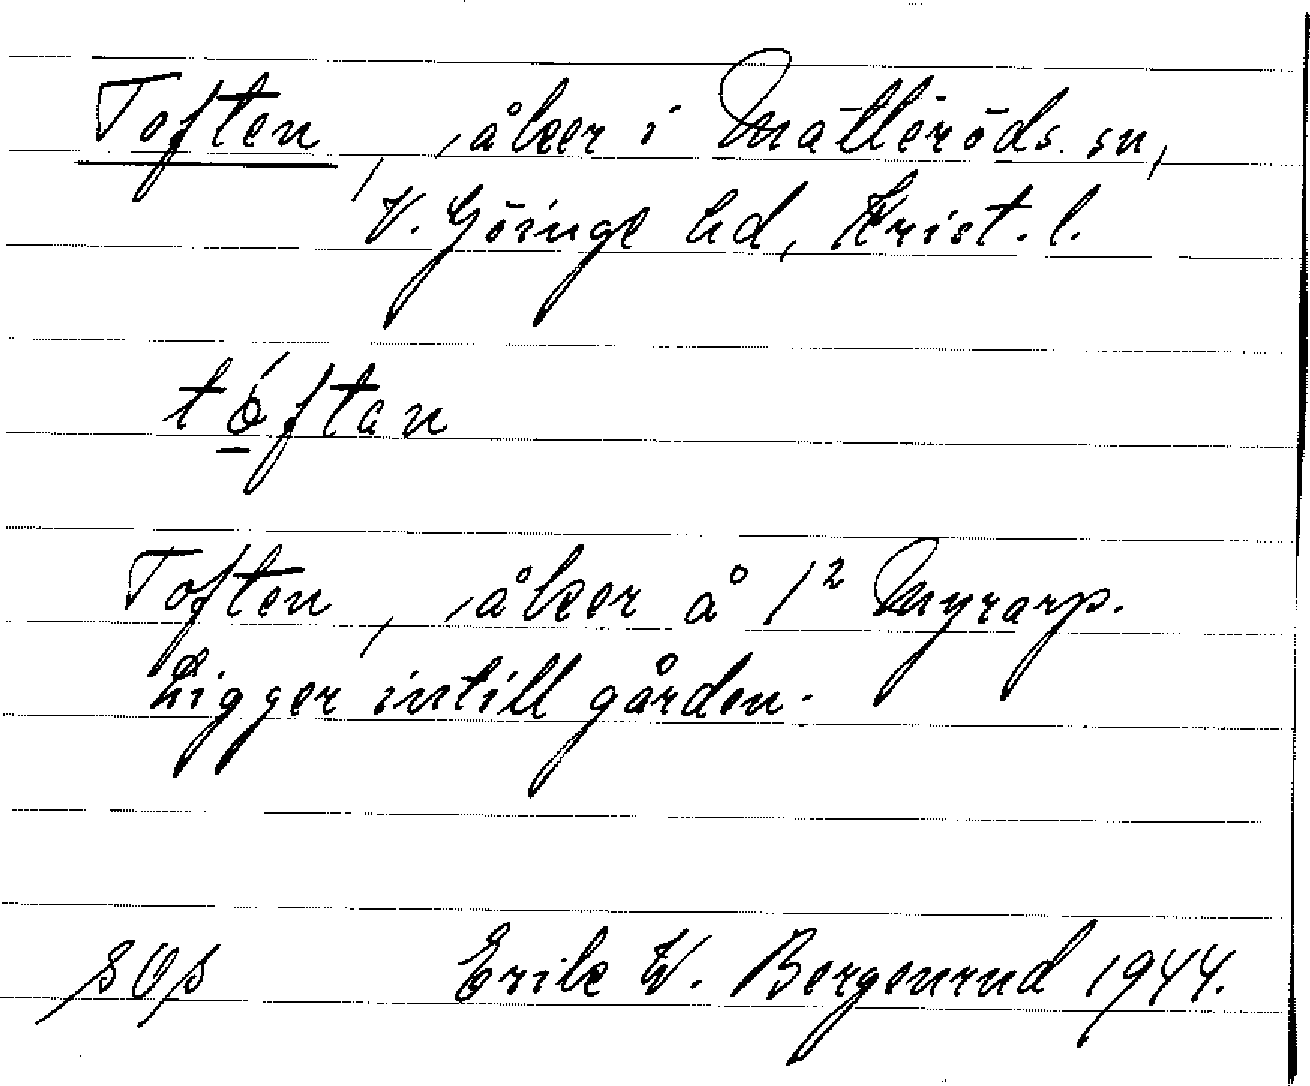 Toften, åker i Matteröds sn,
V. Göinge hd, Krist. l.
tóftan
Toften, åker å 1² Myrarp.
Ligger intill gården.
sOs Erik W. Bergenrud 1944.